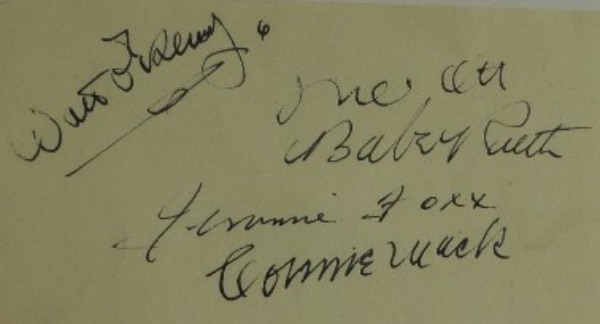 Walt
Mel Ott
Babe Ruth
Jimmie Foxx
Connie Mack